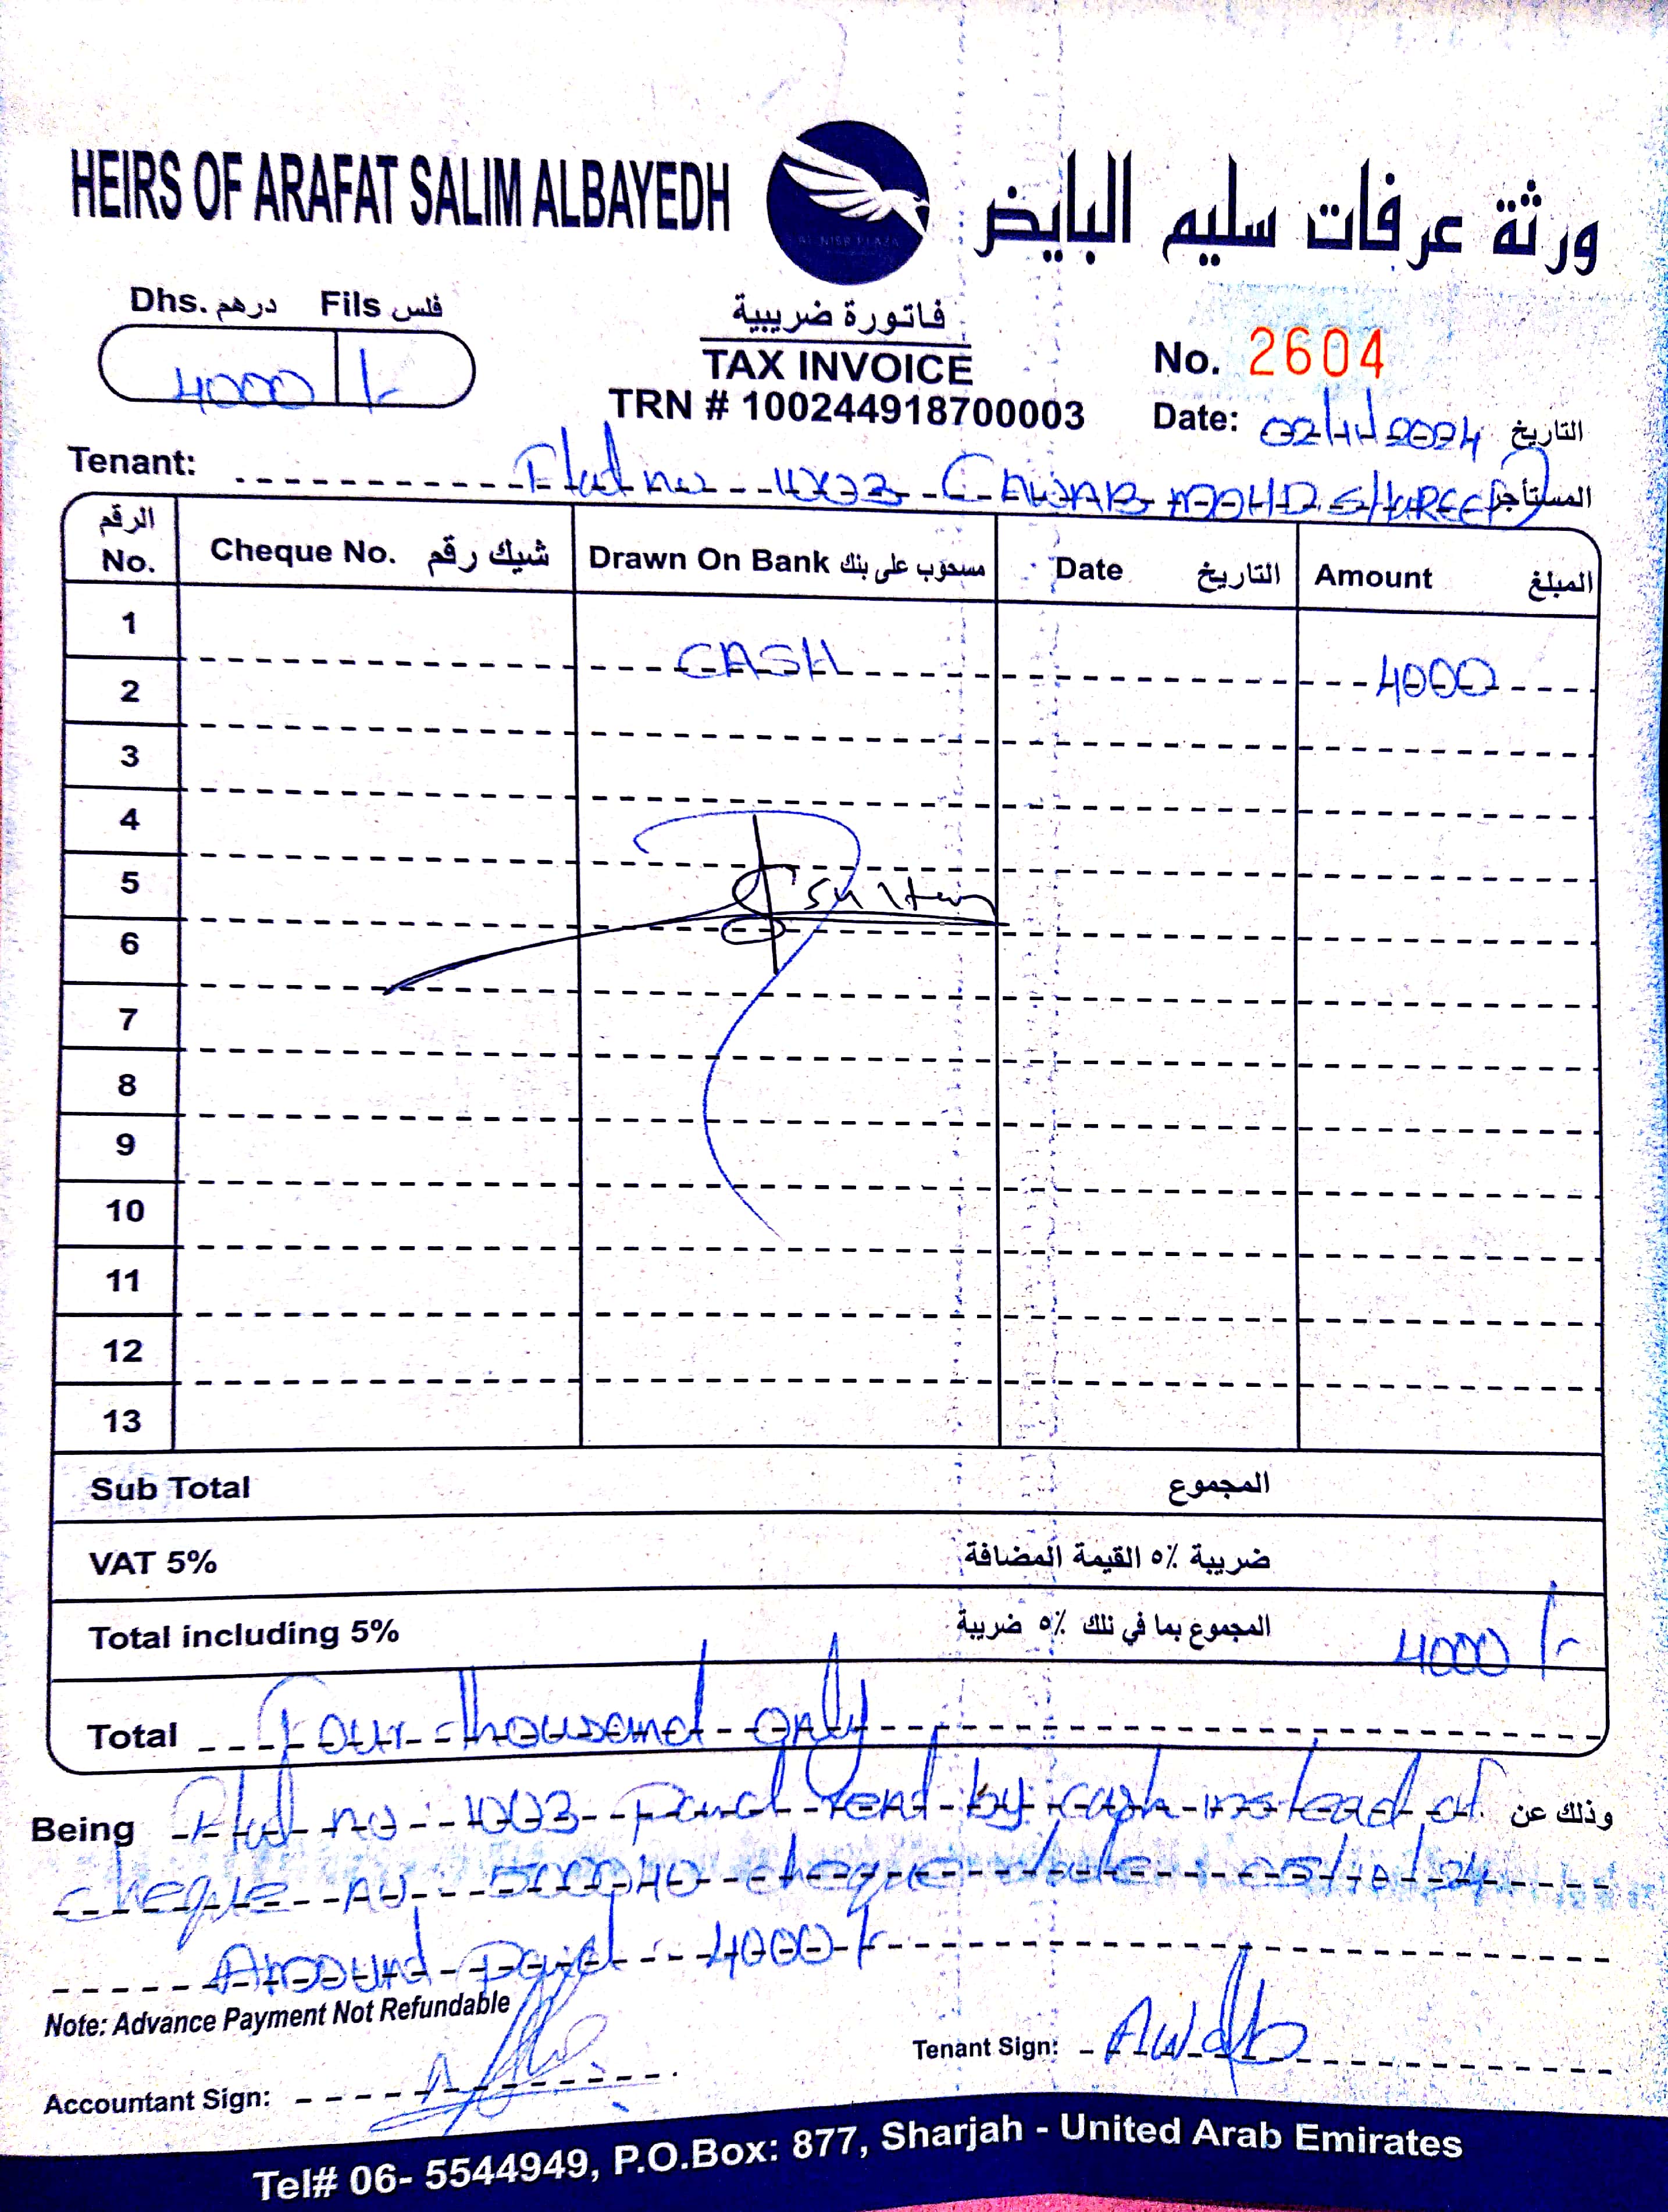 HEIRS OF ARAFAT SALIM ALBAYEDH
ورثة عرفات سليم البايض
AL NISR PLAZA
Dhs. درهم Fils فلس
4000 /-
فاتورة ضريبية
TAX INVOICE
TRN # 100244918700003
No. 2604
Date: 02/11/2024 التاريخ
Tenant: Flat no 1003 (AWAB MOHD SHAREEF) المستأجر
الرقم No. Cheque No. شيك رقم Drawn On Bank مسحوب على بنك Date التاريخ Amount المبلغ
1
CASH 4000
2
3
4
5 Sultan
6
7
8
9
10
11
12
13
Sub Total المجموع
VAT 5% ضريبة ٥٪ القيمة المضافة
Total including 5% المجموع بما في ذلك ٥٪ ضريبة 4000 /-
Total Four thousand only
Being Flat no 1003 paid rend by cash instead of وذلك عن
cheque no 500040 cheque date 05/10/24
Amound paid 4000/-
Note: Advance Payment Not Refundable
Accountant Sign:
Tenant Sign: Awab
Tel# 06- 5544949, P.O.Box: 877, Sharjah - United Arab Emirates